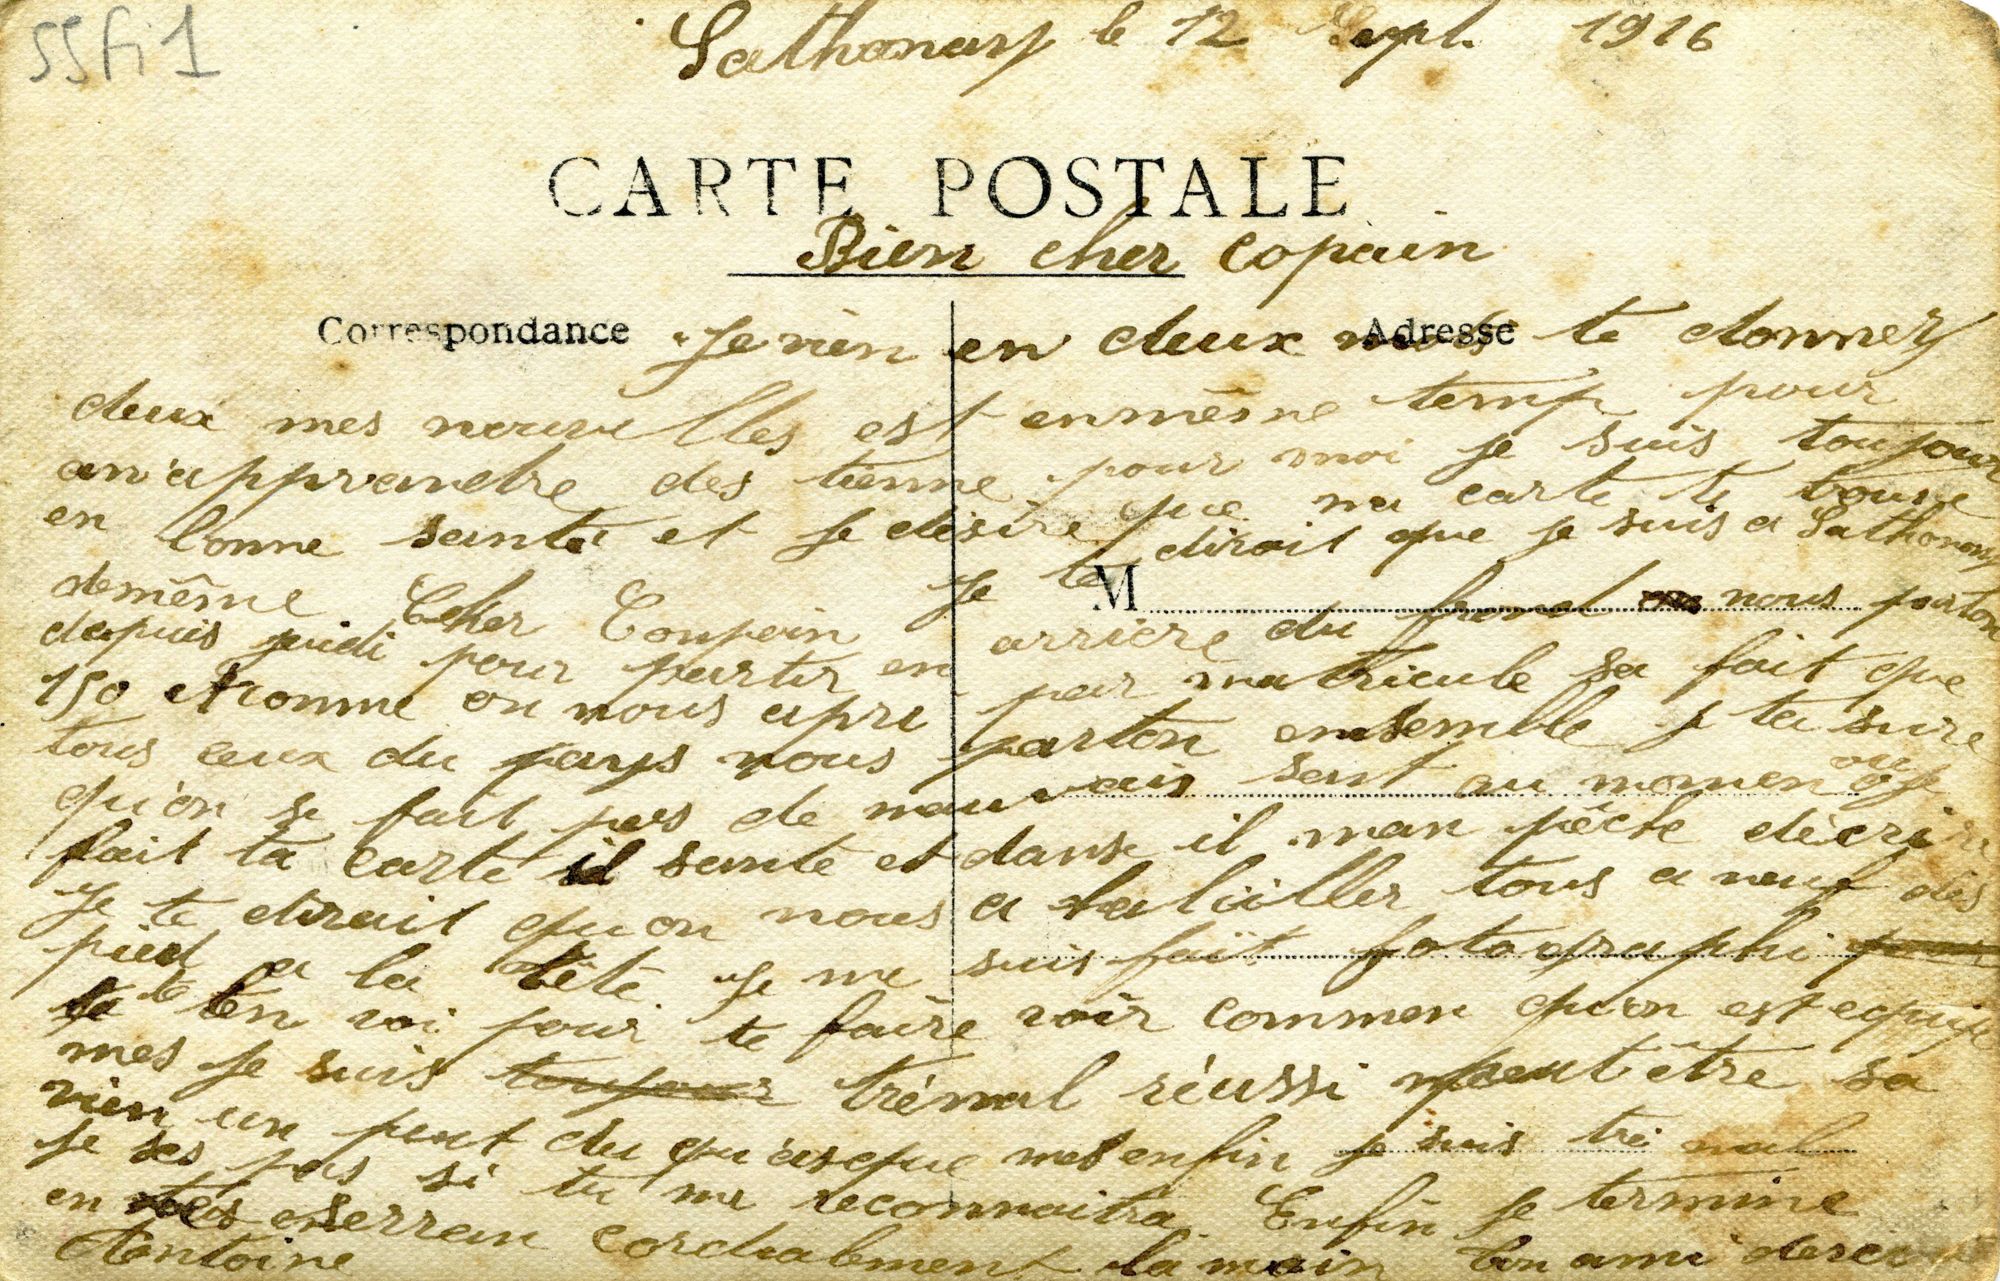 55fi1
Sathonay le 12 Sept. 1916
CARTE POSTALE
Bien cher Copain
Correspondance
Adresse
Je vien en deux mots te donner
deux mes nouvelles est enmême temp pour
an'apprendre des tienne pour moi je suis toujour
en bonne santé et je désire que ma carte te trouve
demême Cher Coupain Je te dirait que je suis a Sathonay
M
depuis jeudi pour partir en arrière du front nous parton
150 Homme on nous apri par matricule sa fait que
tous ceux du pays nous parton ensemble je ta sure
qu'on se fait pas de mauvais sant au momen ou je
fait ta carte il sante et danse il man pêche décrire
Je te dirait qu'on nous a habiiller tous a neuf dès
pied a la tête Je me suis fait fotographi
te t'en voi pour te faire voir commen qu'on est equipé
mes je suis toujour trémal réussi peut être sa
vien un peut du qu'asque mes enfin je suis tré mal
je ses pas si tu me reconnaitra. Enfin je termine
en enserran cordialement la main ton ami
Antoine